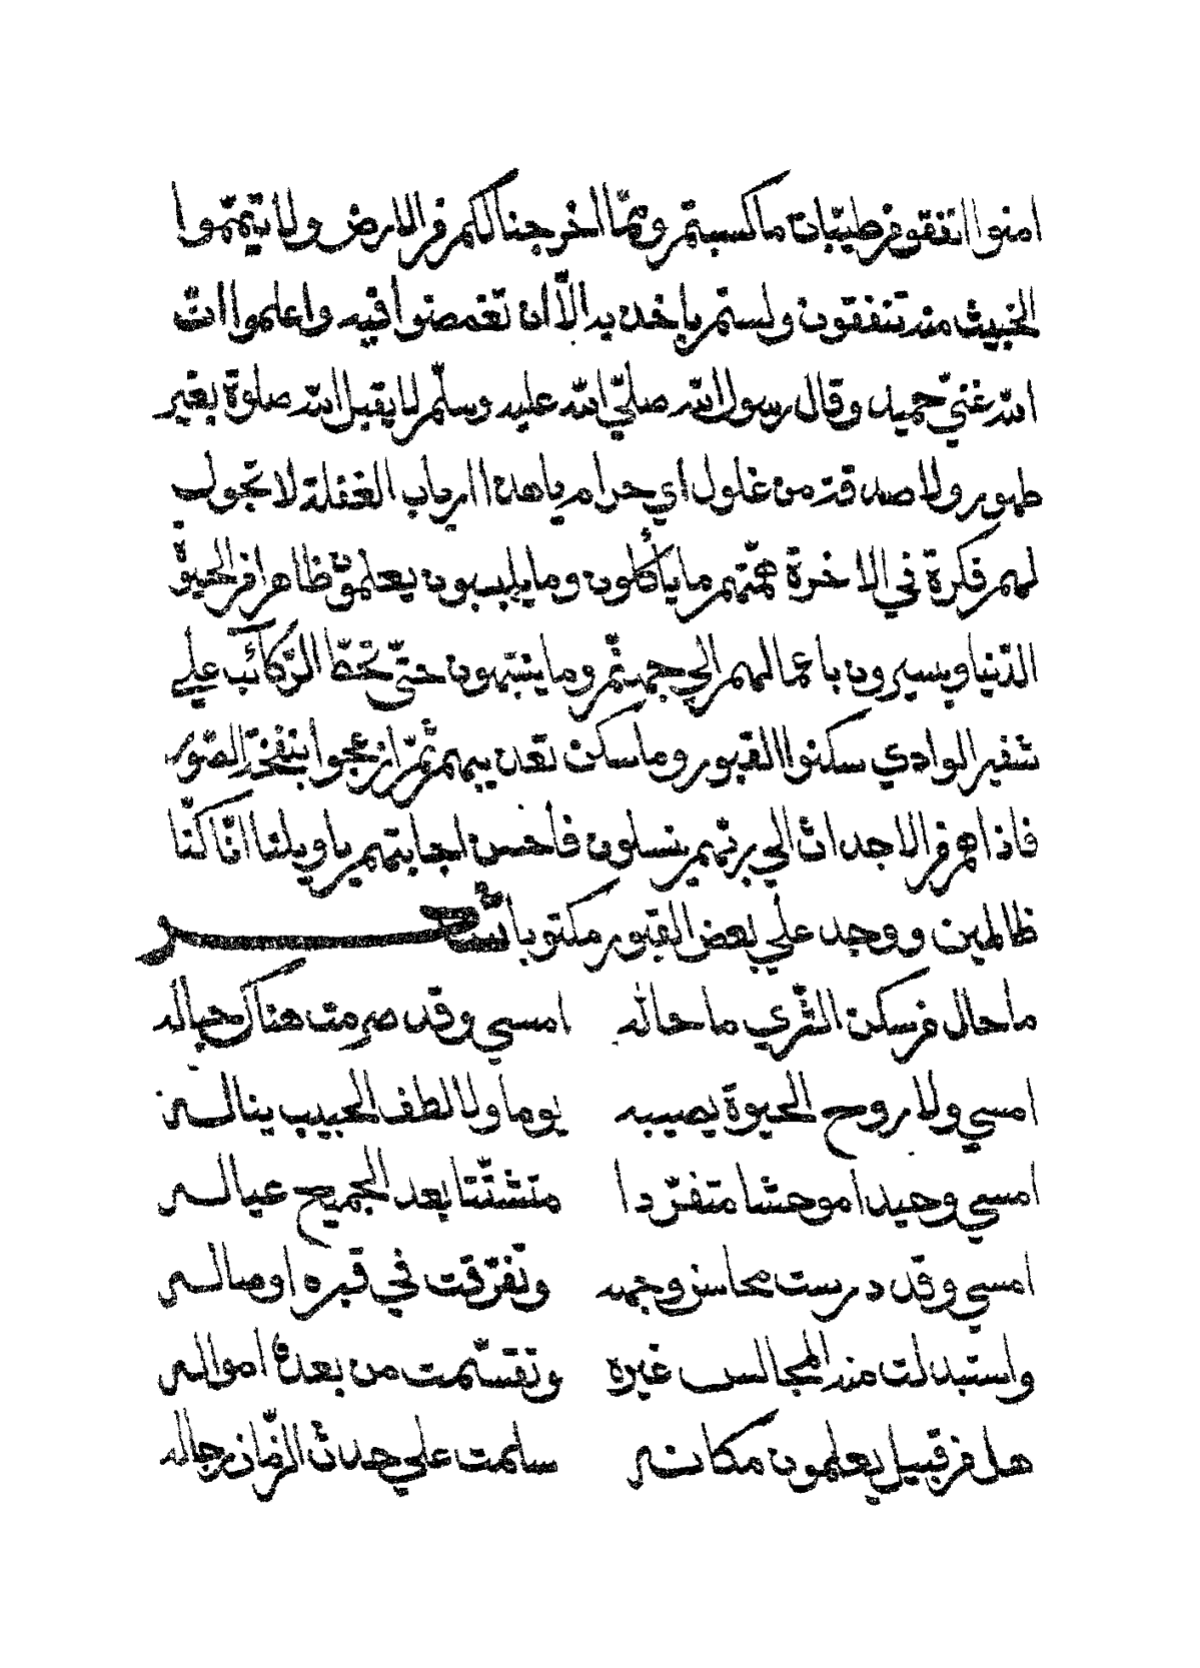 امنوا انفقوا من طيبات ما كسبتم وممّا اخرجنا لكم من الارض ولا تيمّموا
الخبيث منه تنفقون ولستم باخذيه الّا ان تغمضوا فيه واعلموا انّ
الله غنيّ حميد وقال رسول الله صلّي الله عليه وسلّم لا يقبل الله صلوة بغير
طهور ولا صدقة من غلول اي حرام يا هذا ارباب الغفلة لا تجول
لهم فكرة في الاخرة همّتهم ما يأكلون وما يلبسون يعلمون ظاهرا من الحيوة
الدّنيا ويسيرون باعمالهم الي جهنّم وما ينتبهون حتّي تحطّ الرّكائب علي
شفير الوادي سكنوا القبور وما سكن تعذيبهم ثمّ ازعجوا بنفخة الصّور
فاذا هم من الاجداث الي ربّهم ينسلون فاخسّ اجابتهم يا ويلنا انّا كنّا
ظالمين ووجد علي بعض القبور مكتوبا شعر
ما حال من سكن الثّري ما حاله امسي وقد صرمت هناك حباله
امسي ولا روح الحيوة يصيبه يوما ولا لطف الحبيب يناله
امسي وحيدا موحشا متفرّدا متشتّتا بعد الجميع عياله
امسي وقد درست محاسن وجهه وتفرّقت في قبره اوصاله
واستبدلت منه المجالس غيره وتقسّمت من بعده امواله
هل من قبيل يعلمون مكانه سلمت علي حدث الزّمان رجاله